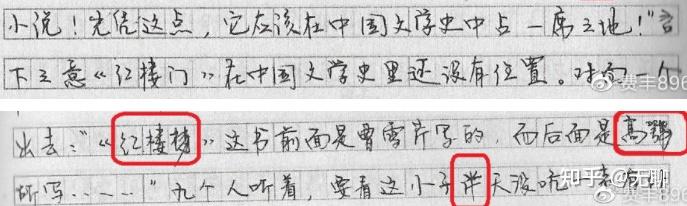 小说！光凭这点，它应该在中国文学史中占一席之地！"言
下之意《红楼门》在中国文学史里还没有位置。对
费丰896
出去："《红楼梦》这书前面是曹雪芹写的，而后面是高鹗
所写……"九个人听着，要看这小子天没吭
知乎 @无聊
费丰896